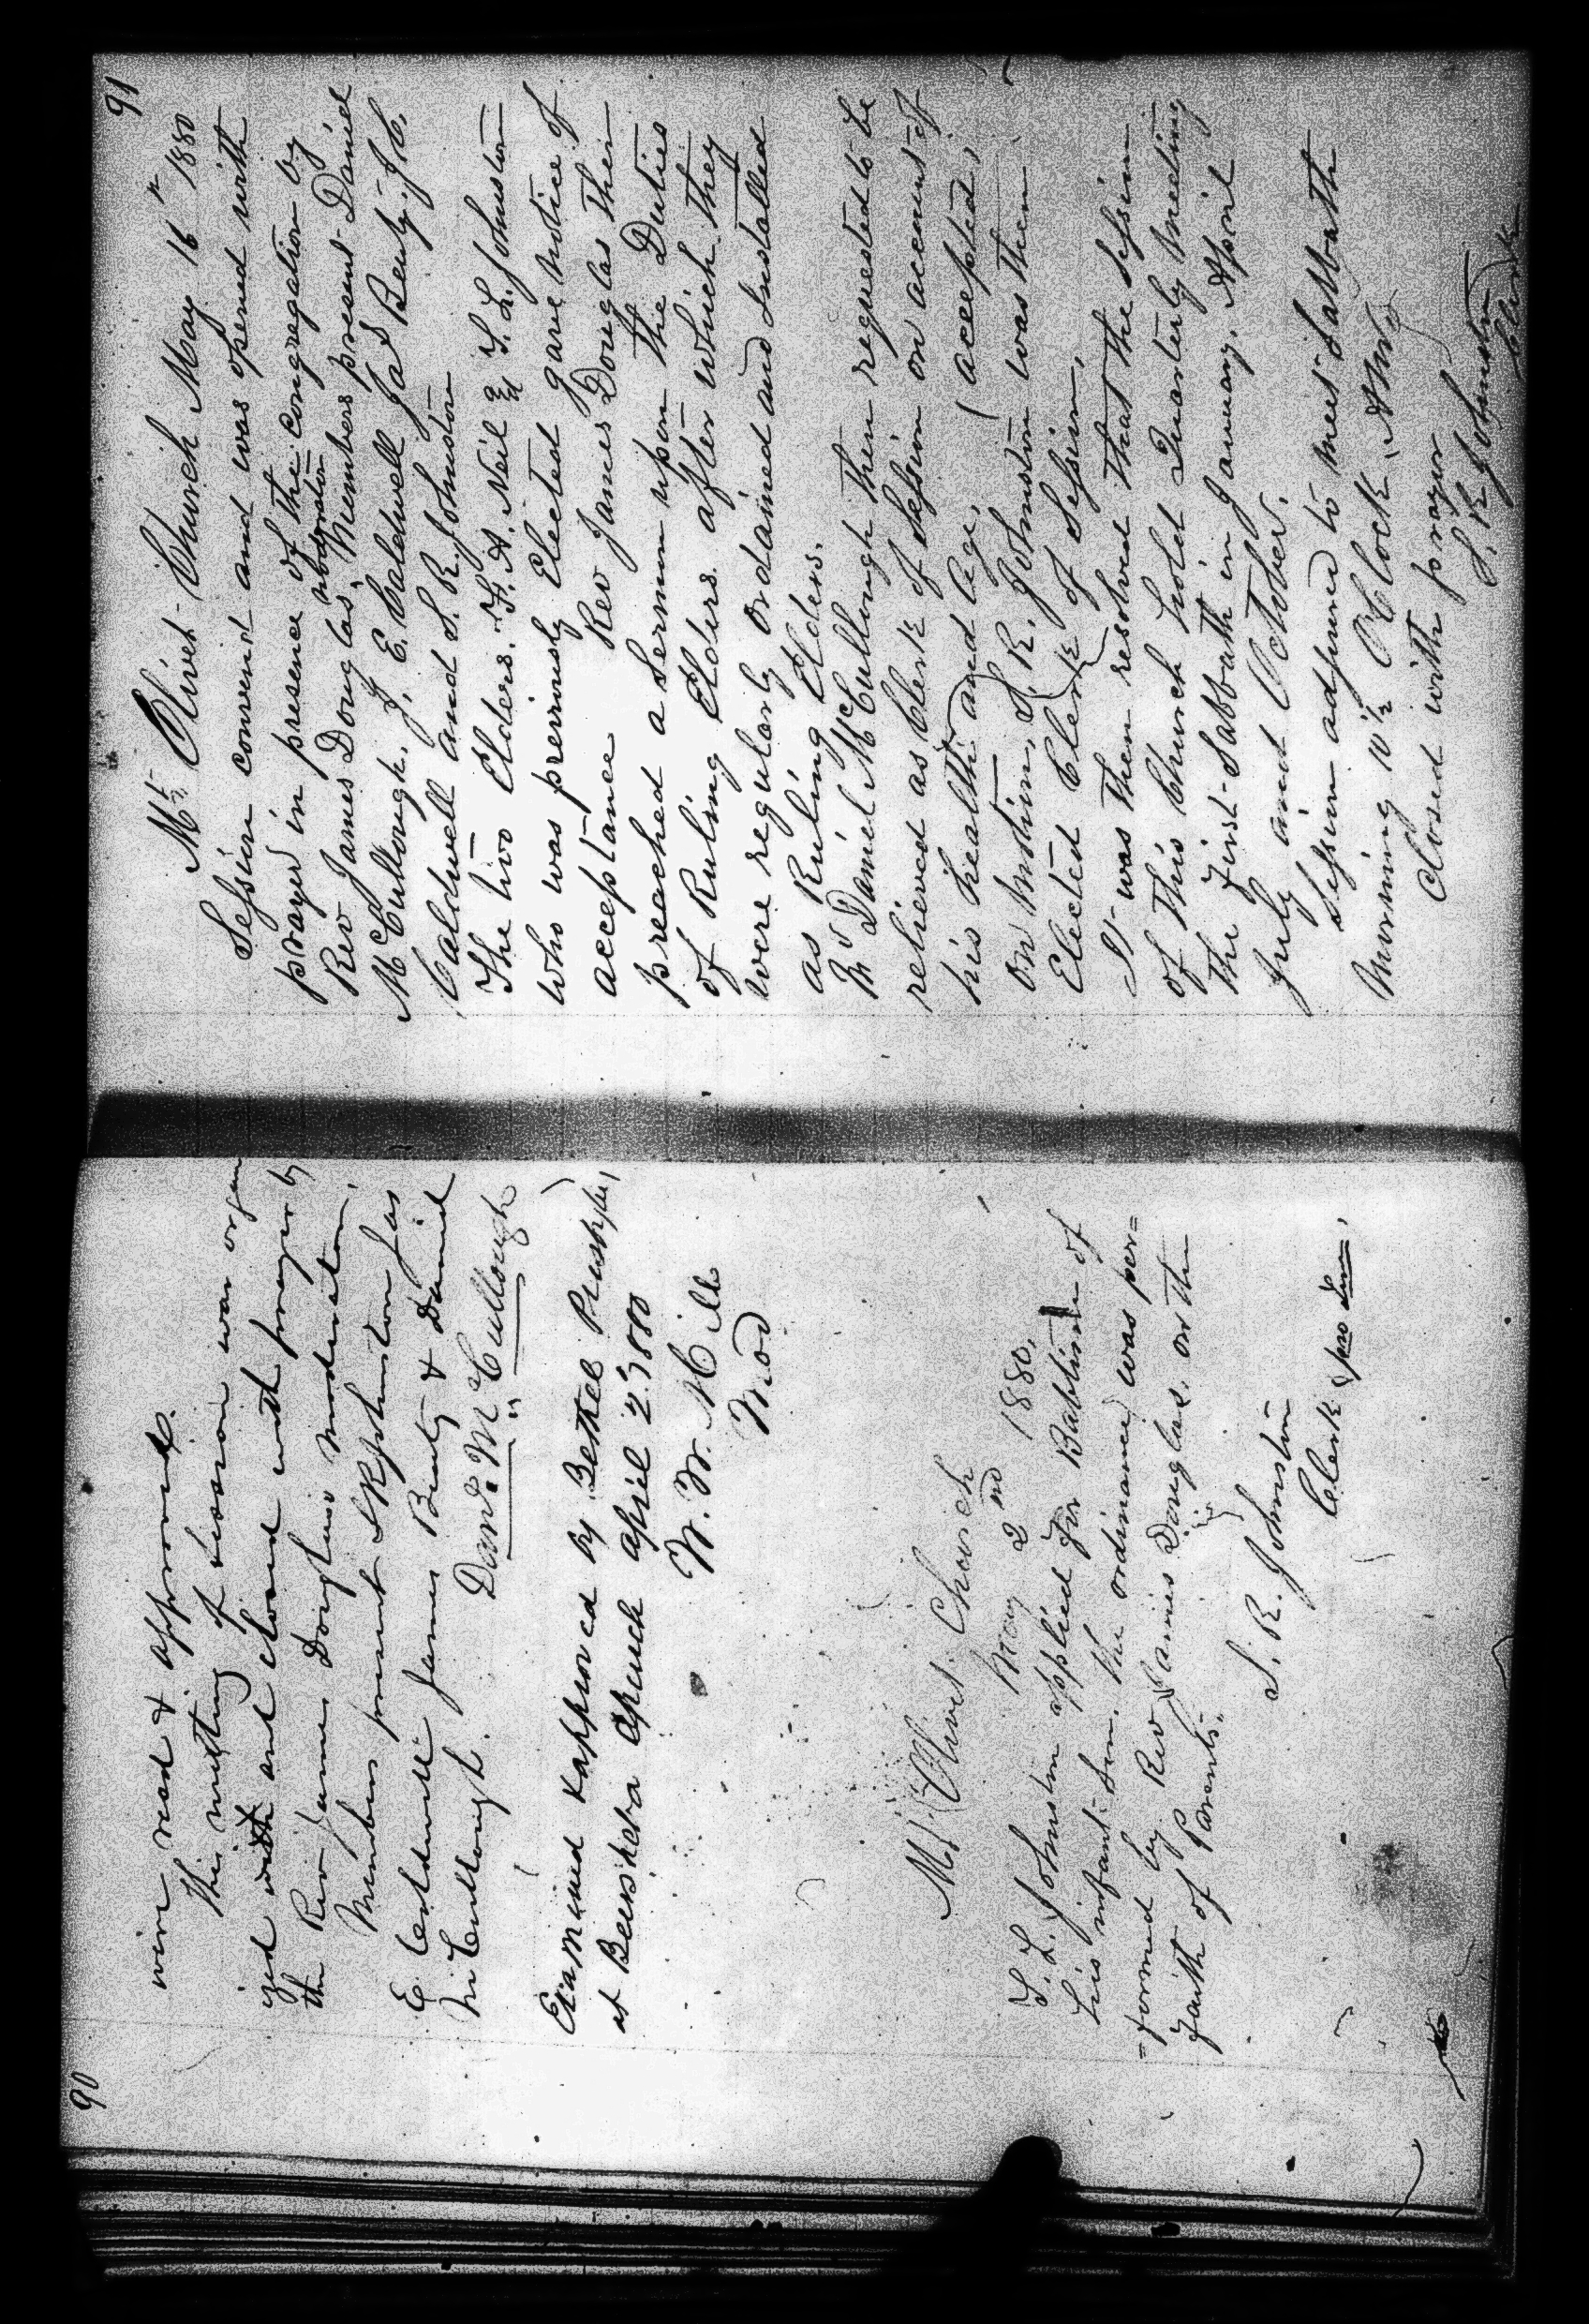 90
were read & approved.
This meeting of session was organ
ized with and closed with prayer by
the Rev James Douglass moderator,
Members present S R Johnston Jas
E Caldwell James Beaty & Daniel
McCullough. Danl. McCullough
Examined & approved by Bethel Presbytery
at Beersheba Church April 23 1880
W. W. Mills
Mod
Mt Olivet Church
May 2nd 1880.
S. L. Johnston applied for Babtism of
his infant son. the ordinance was per=
=formed by Rev James Douglas. on the
faith of Parents.
S. R. Johnston
Clerk pro tem.
91
Mt Olivet Church May 16th 1880
Session convend and was opened with
prayer in presence of the congregation by
Rev James Douglas, moderator Members present Daniel
McCullough. J. E. Caldwell Jas Beaty. J. C.
Caldwell and S. R. Johnston
The two Elders. H. Neil & S. L. Johnston
who was previously Elected gave notice of
acceptance Rev James Douglas Then
preached a sermon upon the Duties
of Ruling Elders. after which They
were regularly ordained and Installed
as Ruling Elders.
Mr Daniel McCullough then requested to be
relieved as Clerk of Session on account of
his health and age, (accepted)
on motion, S. R. Johnston was then
Elected Clerk of Session.
It was then resolved that the Session
of this Church hold Quarterly meeting
the First Sabbath in January, April
July and October.
Session adjourned to meet Sabbath
Morning 10 ½ O Clock
Closed with prayer
S. R. Johnston
Clerk